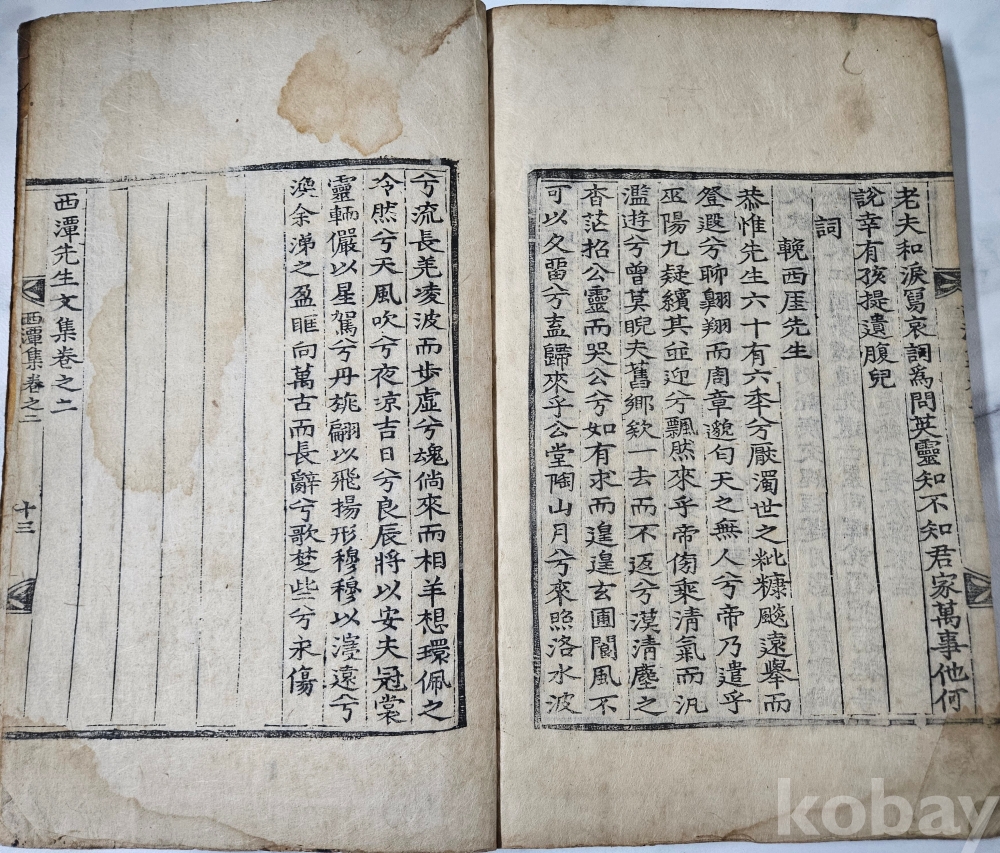 老夫和淚寫哀詞爲問英靈知不知君家萬事他何
說幸有孩提遺腹兒
詞
輓西厓先生
恭惟先生六十有六年兮厭濁世之粃糠飈遠擧而
登遐兮聊翺翔而周章邈旬天之無人兮帝乃遣乎
巫陽九疑續其並迎兮飄然來乎帝傍乘淸氣而汎
濫遊兮曾莫睨夫舊鄕欸一去而不返兮漠淸塵之
杳茫招公靈而哭公兮如有求而遑遑玄圃閬風不
可以久畱兮盍歸來乎公堂陶山月兮來照洛水波
兮流長羌凌波而步虛兮魂倘來而相羊想環佩之
冷然兮天風吹兮夜凉吉日兮良辰將以安夫冠裳
靈輀儼以星駕兮丹旐翩以飛揚形穆穆以濅遠兮
渙余涕之盈眶向萬古而長辭兮歌楚些兮永傷
西潭先生文集卷之二
西潭集卷之二
十三
kobay